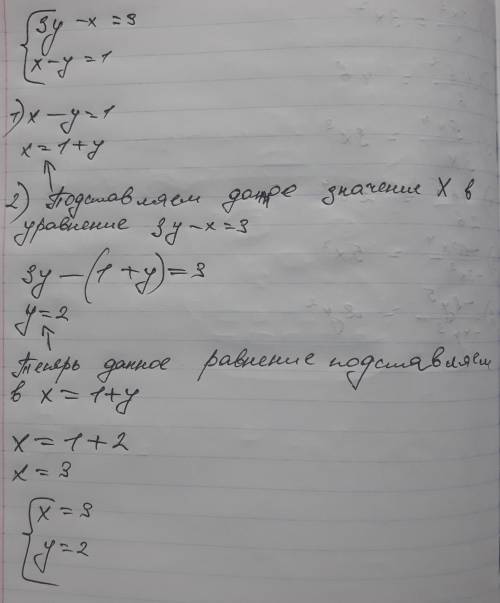 3y - x = 3
x - y = 1
1) x - y = 1
x = 1 + y
2) Подставляем данное значение X в
уравнение 3y - x = 3
3y - (1 + y) = 3
y = 2
Теперь данное равнение подставляем
в x = 1 + y
x = 1 + 2
x = 3
x = 3
y = 2